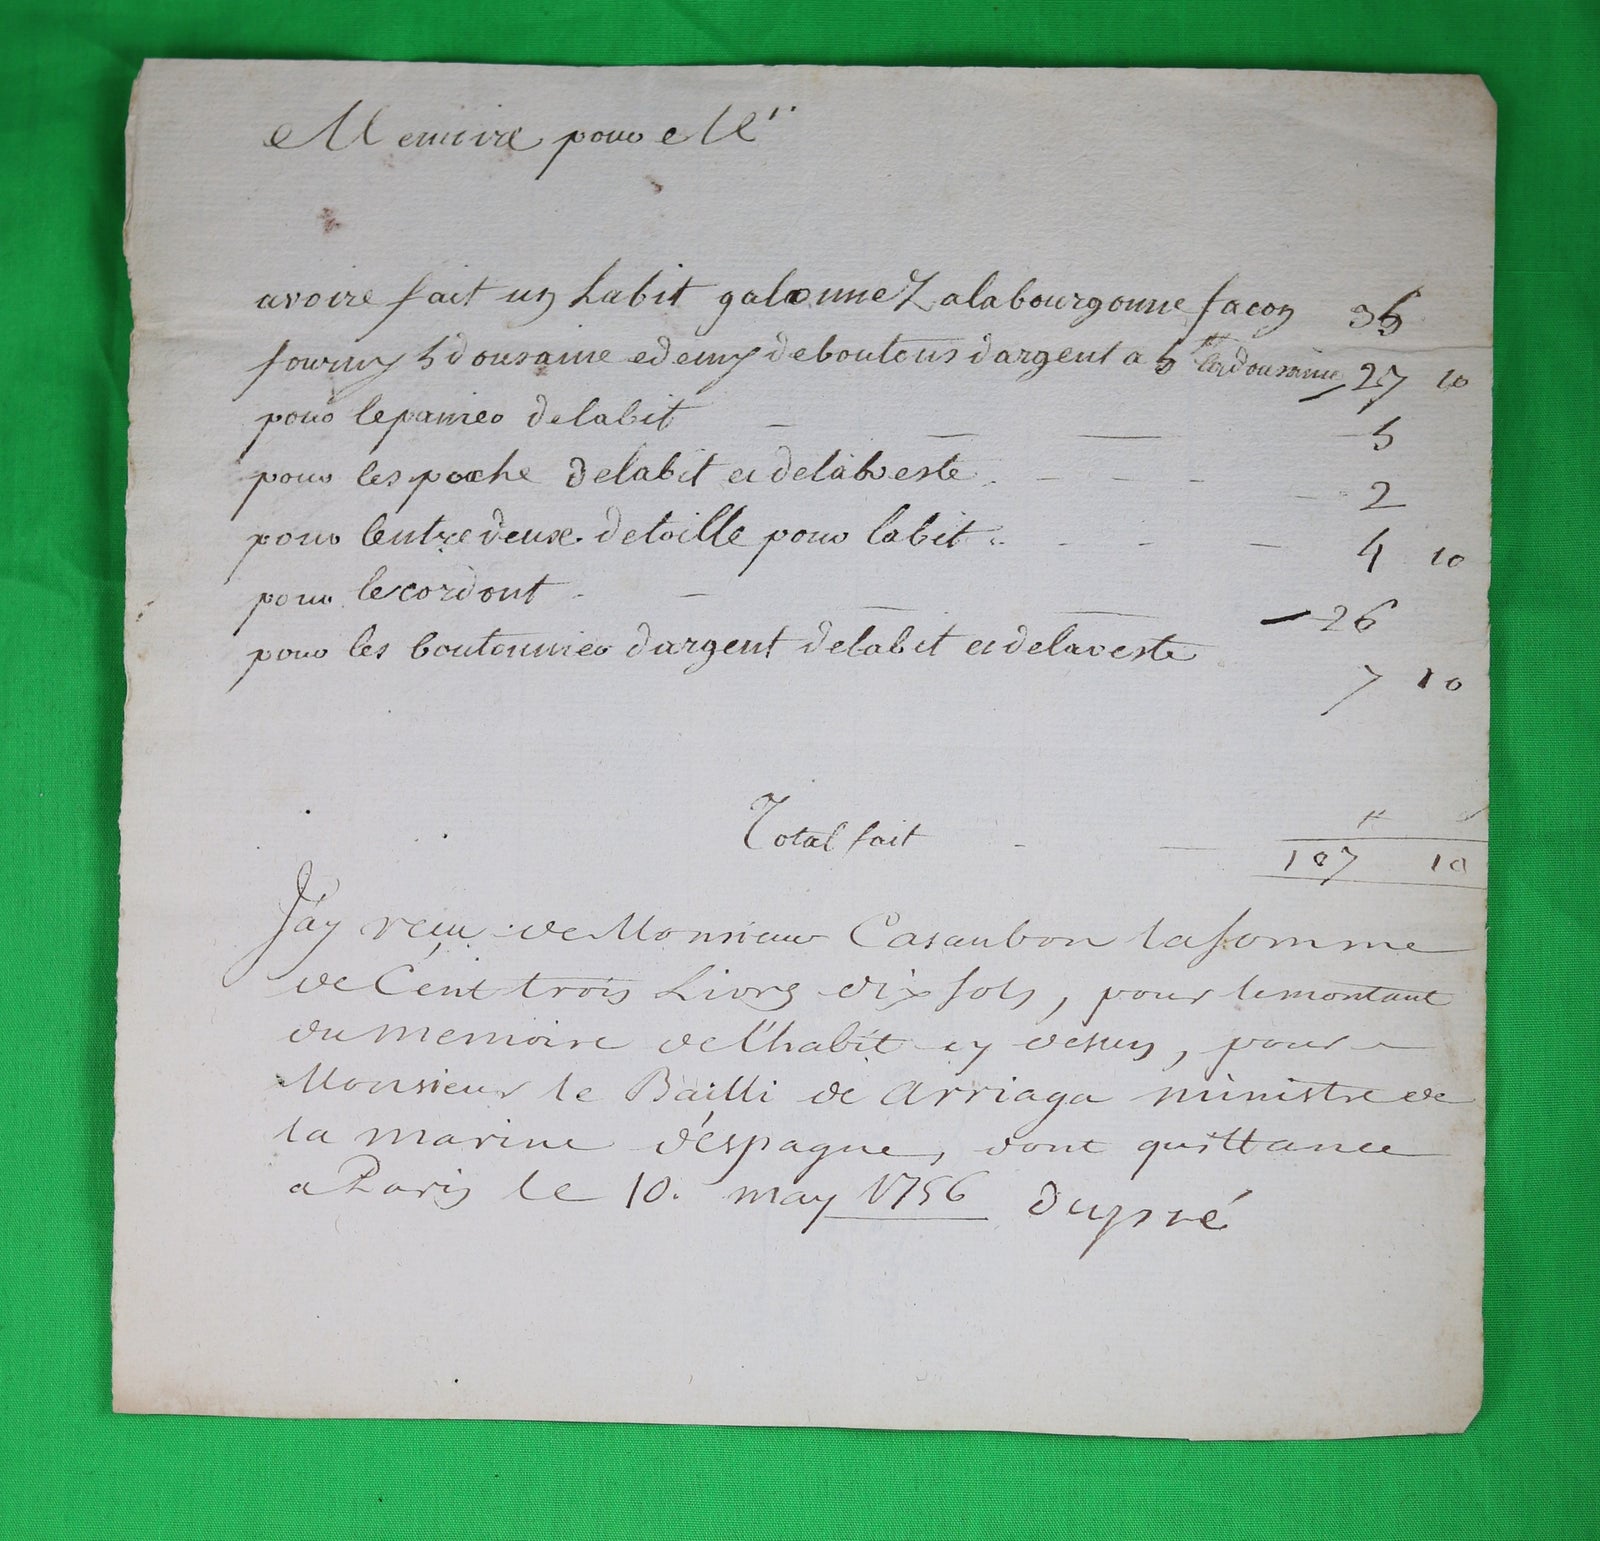 Memoire pour Mr
avoire fait un habit galonnez alabourgonne facon 36
fourny 5 dousaine edemy deboutons dargent a 5 ladousaine 27 10
pour lepanier delabit 5
pour les poche delabit et delaveste 2
pour lentredeux detoille pour labit 4 10
pour lecordont 26
pour les boutonnier dargent delabit et delaveste 7 10
Total fait 107 10
J'ay reçu de Monsieur Casaubon lasomme
de Cent trois Livres dix sols, pour lemontant
du memoire de l'habit cy dessus, pour
Monsieur le Bailli de Arriaga ministre de
la marine d'espagne, dont quittance
a Paris le 10. may 1756 dupré